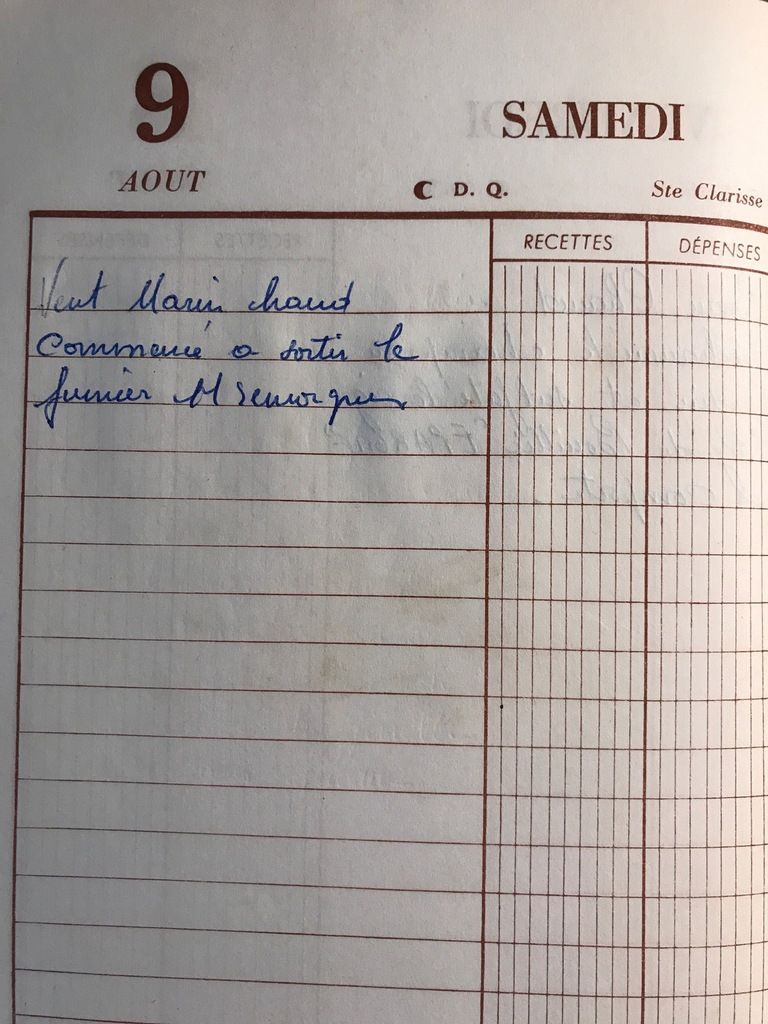 9
SAMEDI
AOUT
☾ D. Q.
Ste Clarisse
RECETTES
DÉPENSES
Vent Marin chaud
Commencé a sortir le
fumier 11 remorques